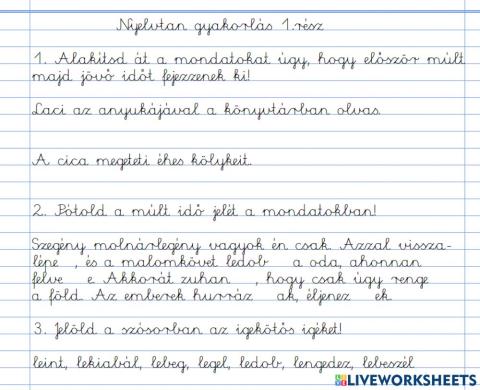 Nyelvtan gyakorlás 1.rész
1. Alakítsd át a mondatokat úgy, hogy először múlt
majd jövő időt fejezzenek ki!
Laci az anyukájával a könyvtárban olvas.
A cica megeteti éhes kölykeit.
2. Pótold a múlt idő jelét a mondatokban!
Szegény molnárlegény vagyok én csak. Azzal vissza-
lépe , és a malomkövet ledob a oda, ahonnan
felve e. Akkorát zuhan , hogy csak úgy renge
a föld. Az emberek hurráz ak, éljenez ek.
3. Jelöld a szósorban az igekötős igéket!
leint, lekiabál, lebeg, legel, ledob, lengedez, lebeszél
LIVEWORKSHEETS